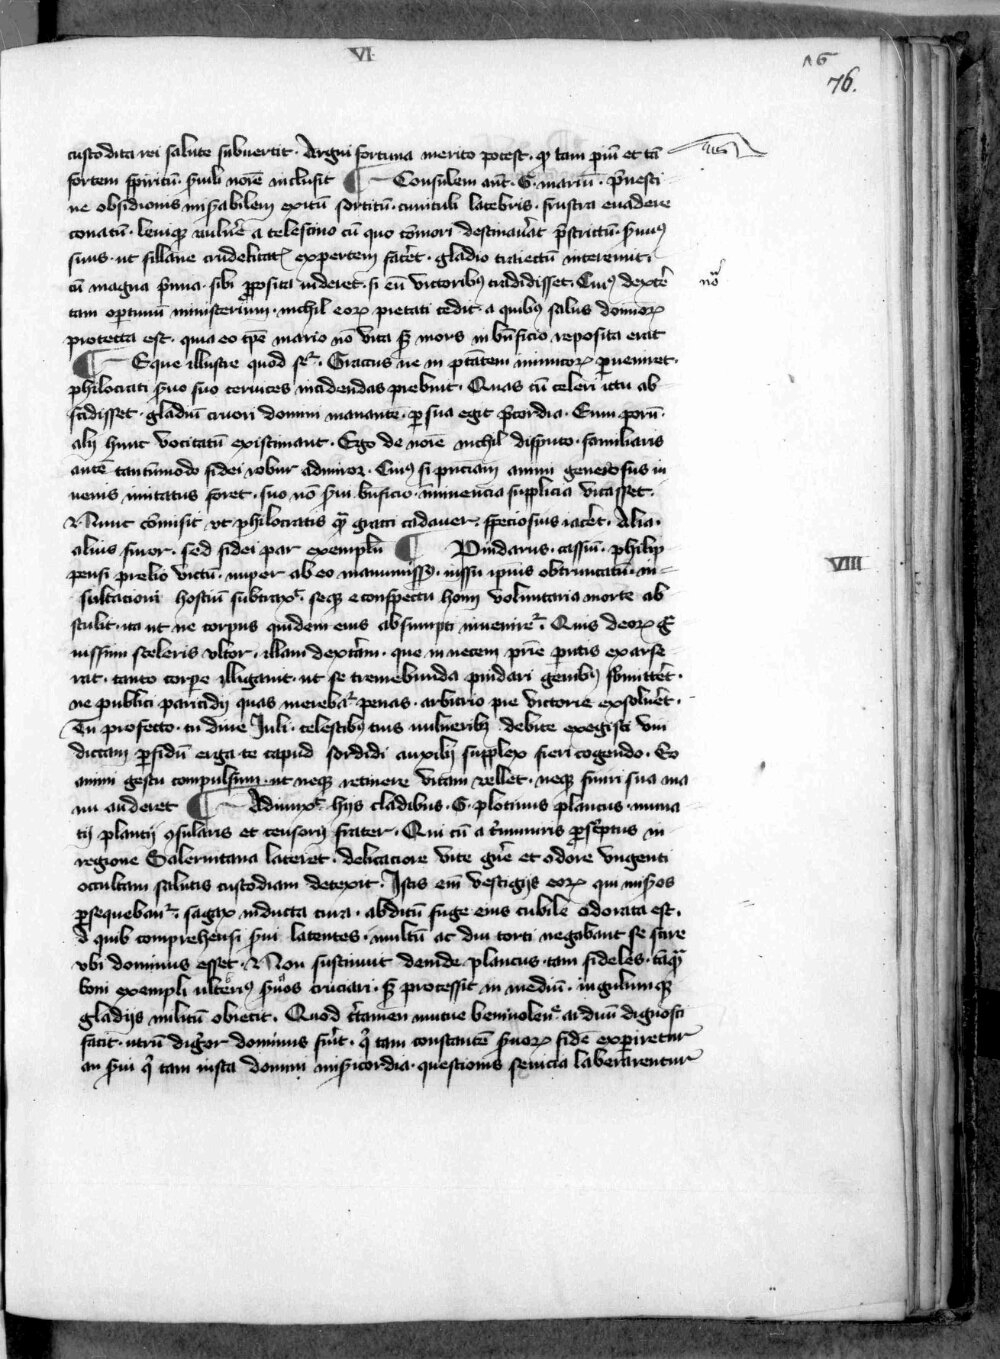 VI
76
76.
custodita rei salute subuertit · Argui fortuna merito potest · qͥ tam piū et tā
fortem spiritū · ẜuili noīe inclusit ¶ Consulem aūt · G · mariū · p̄nesti
ne obsidionis miẜabilem exitū sortitū · cuniculi latebris · frustra euadere
conatū · leuiqꝫ uulne̅ a telesino cū quo cōmori destinau̅at p̄strictū · ẜuus
suus · ut sillane crudelitatꝭ expertem face̅t · gladio traiectū interemit ·
cū magna p̄mia · sibi ꝓposita uideret · si eū victoribꝰ tradidisset · Cuiꝰ dext̅e
nō
tam oportunū ministerium · nichil eoꝝ pietati cedit · a quibꝰ salus dominoꝝ
protecta est · quia eo tp̄e mario nō vita sꝫ mors in bn̄ficio reposita erat
¶ Eque illustre quod seqͬ · Graccus ne in ptātem inimicoꝝ ꝑueniret ·
philocrati ẜuo suo ceruices incidendas prebuit · Quas cū celeri ictu ab
scidisset · gladiū cruori domini manantē · ꝑ sua egit p̄cordia · Eum porū ·
alij hunc vocitatū existimant · Ego de noīe nichil disputo · familiaris
autē tantūmodo fidei robur admiror · Cuiꝰ si pn̄ciam animi generosus iu
uenis imitatus foret · suo nō ẜui bn̄ficio · īminencia supplicia vitasset ·
Nunc cōmisit vt philocratis qͣ̄ gracci cadauer · speciosius iace̅t · Alia ·
alius furor · sed fidei par exemplū ¶ Pindarus · cassiū · philip
pensi prelio victū · nuper ab eo manumissꝰ · iussu ip̄ius obtruncatū · in
sultacioni hostiū subtraxͭ · seqꝫ e conspectu hoīm voluntaria morte ab
stulit · ita ut ne corpus quidem eius absumpti inuenireͬ · Quis deoꝝ gͣ
uissimi sceleris vltor · illam dext̅am · que in necem pr̄ie pn̄tis exarse
rat · tanto torpore illigauit · ut se tremebunda pindari genibꝰ sb̄mitte̅t ·
ne publici paricidij quas merebaͬ penas · arbitrio pie victorie exsolue̅t ·
Tu profecto · tu diue Iuli · celestibꝰ tuis uulneribꝫ debite exegisti vin
dictam ꝑfidū erga te capud sordidi auxilij supplex fieri cogendo · Eo
animi gestu compulsum · ut neqꝫ retinere vitam vellet · neqꝫ finiri sua ma
nu auderet ¶ Adiunxͭ hijs cladibus · G · plotinus plancus · muna
tij plancij ꝯsularis et censorij frater · Qui cū a t̅umuiris ꝓsc̅ptus in
regione Salernitana lateret · delicaciore vite gn̄e et odore vngenti
occultam salutis custodiam detexit · Istis em̄ vestigijs eoꝝ qui miẜos
ꝑsequebanͬ · sagax inducta cura · abditū fuge eius cubile odorata est ·
A quibꝰ comprehensi ẜui latentes · multū ac diu torti negabant se scire
vbi dominus esset · Non sustinuit deinde plancus · tam fideles · tāqͣ
boni exempli ulteriꝰ ẜuos cruciari · sꝫ processit in mediū · iugulumqꝫ
gladijs militū obiecit · Quod c̅tamen mutue beniuolenͨͤ arduū dignosci
facit · utrū dignͥor dominus fue̅it · qͥ tam constantē ẜuoꝝ fidē expiretur
an ẜui qͥ tam iusta domini miẜicordia · questionis seuicia laberarentur
VIII